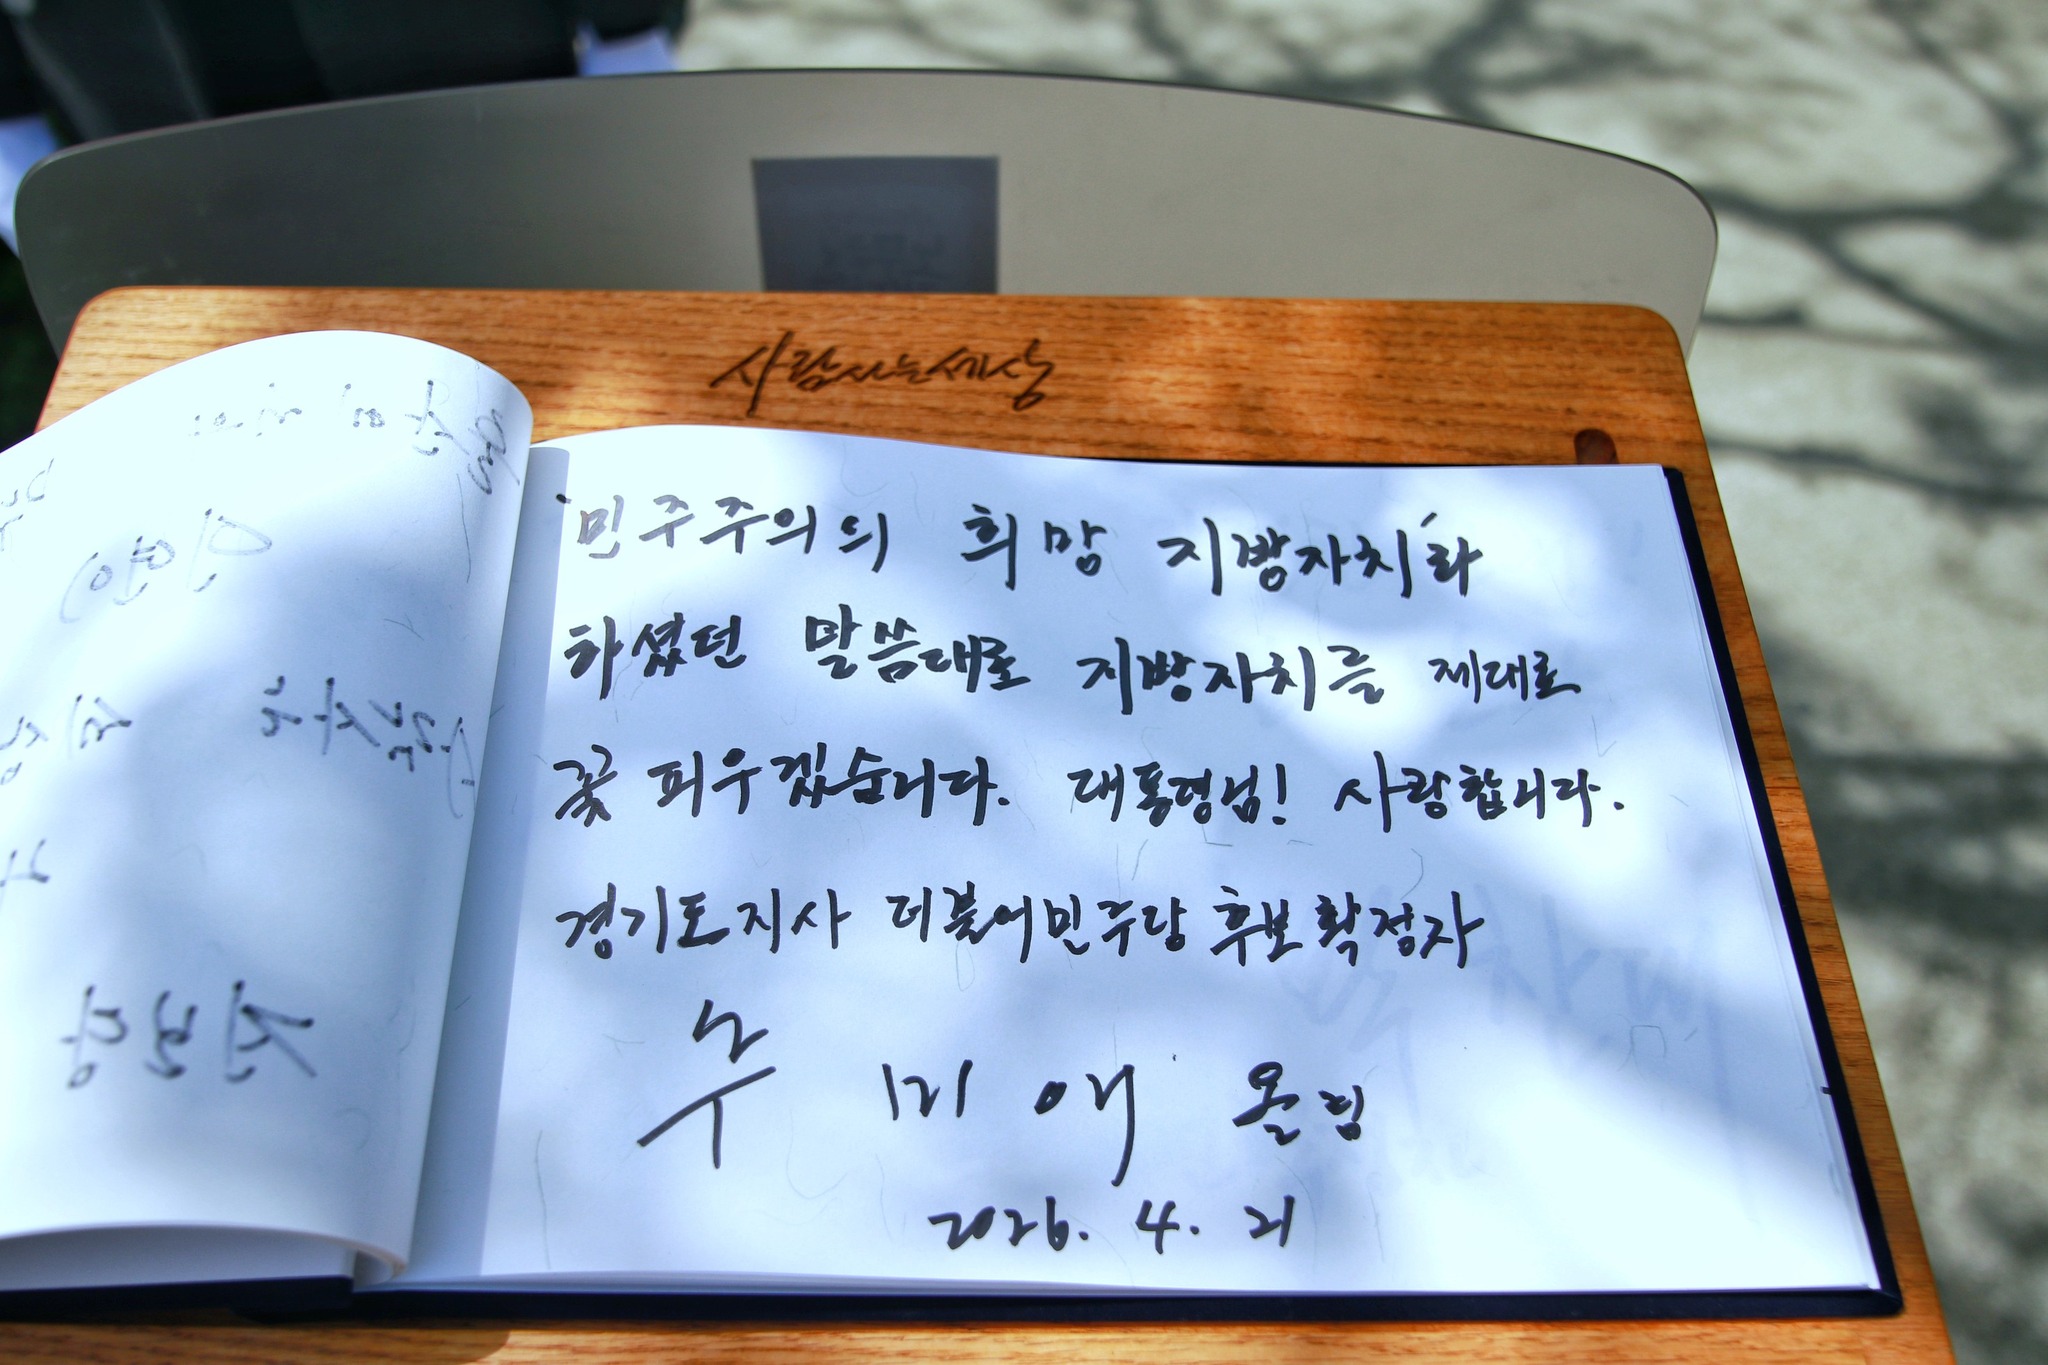 사람사는세상
'민주주의의 희망 지방자치'라
하셨던 말씀대로 지방자치를 제대로
꽃 피우겠습니다. 대통령님! 사랑합니다.
경기도지사 더불어민주당 후보확정자
추 미 애 올림
2026. 4. 21